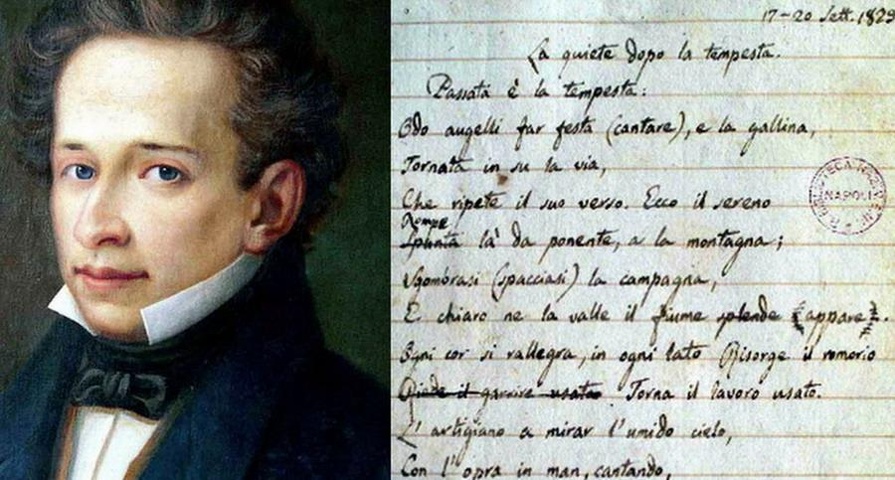 17-20 Sett. 1829
La quiete dopo la tempesta.
Passata è la tempesta:
Odo augelli far festa (cantare), e la gallina,
Tornata in su la via,
Che ripete il suo verso. Ecco il sereno
Rompe
Spunta là da ponente, a la montagna;
Sgombrasi (spacciasi) la campagna,
E chiaro ne la valle il fiume splende (appare).
Ogni cor si rallegra, in ogni lato Risorge il romorio
Torna il lavoro usato.
L'artigiano a mirar l'umido cielo,
Con l'opra in man, cantando,
NAPOLI